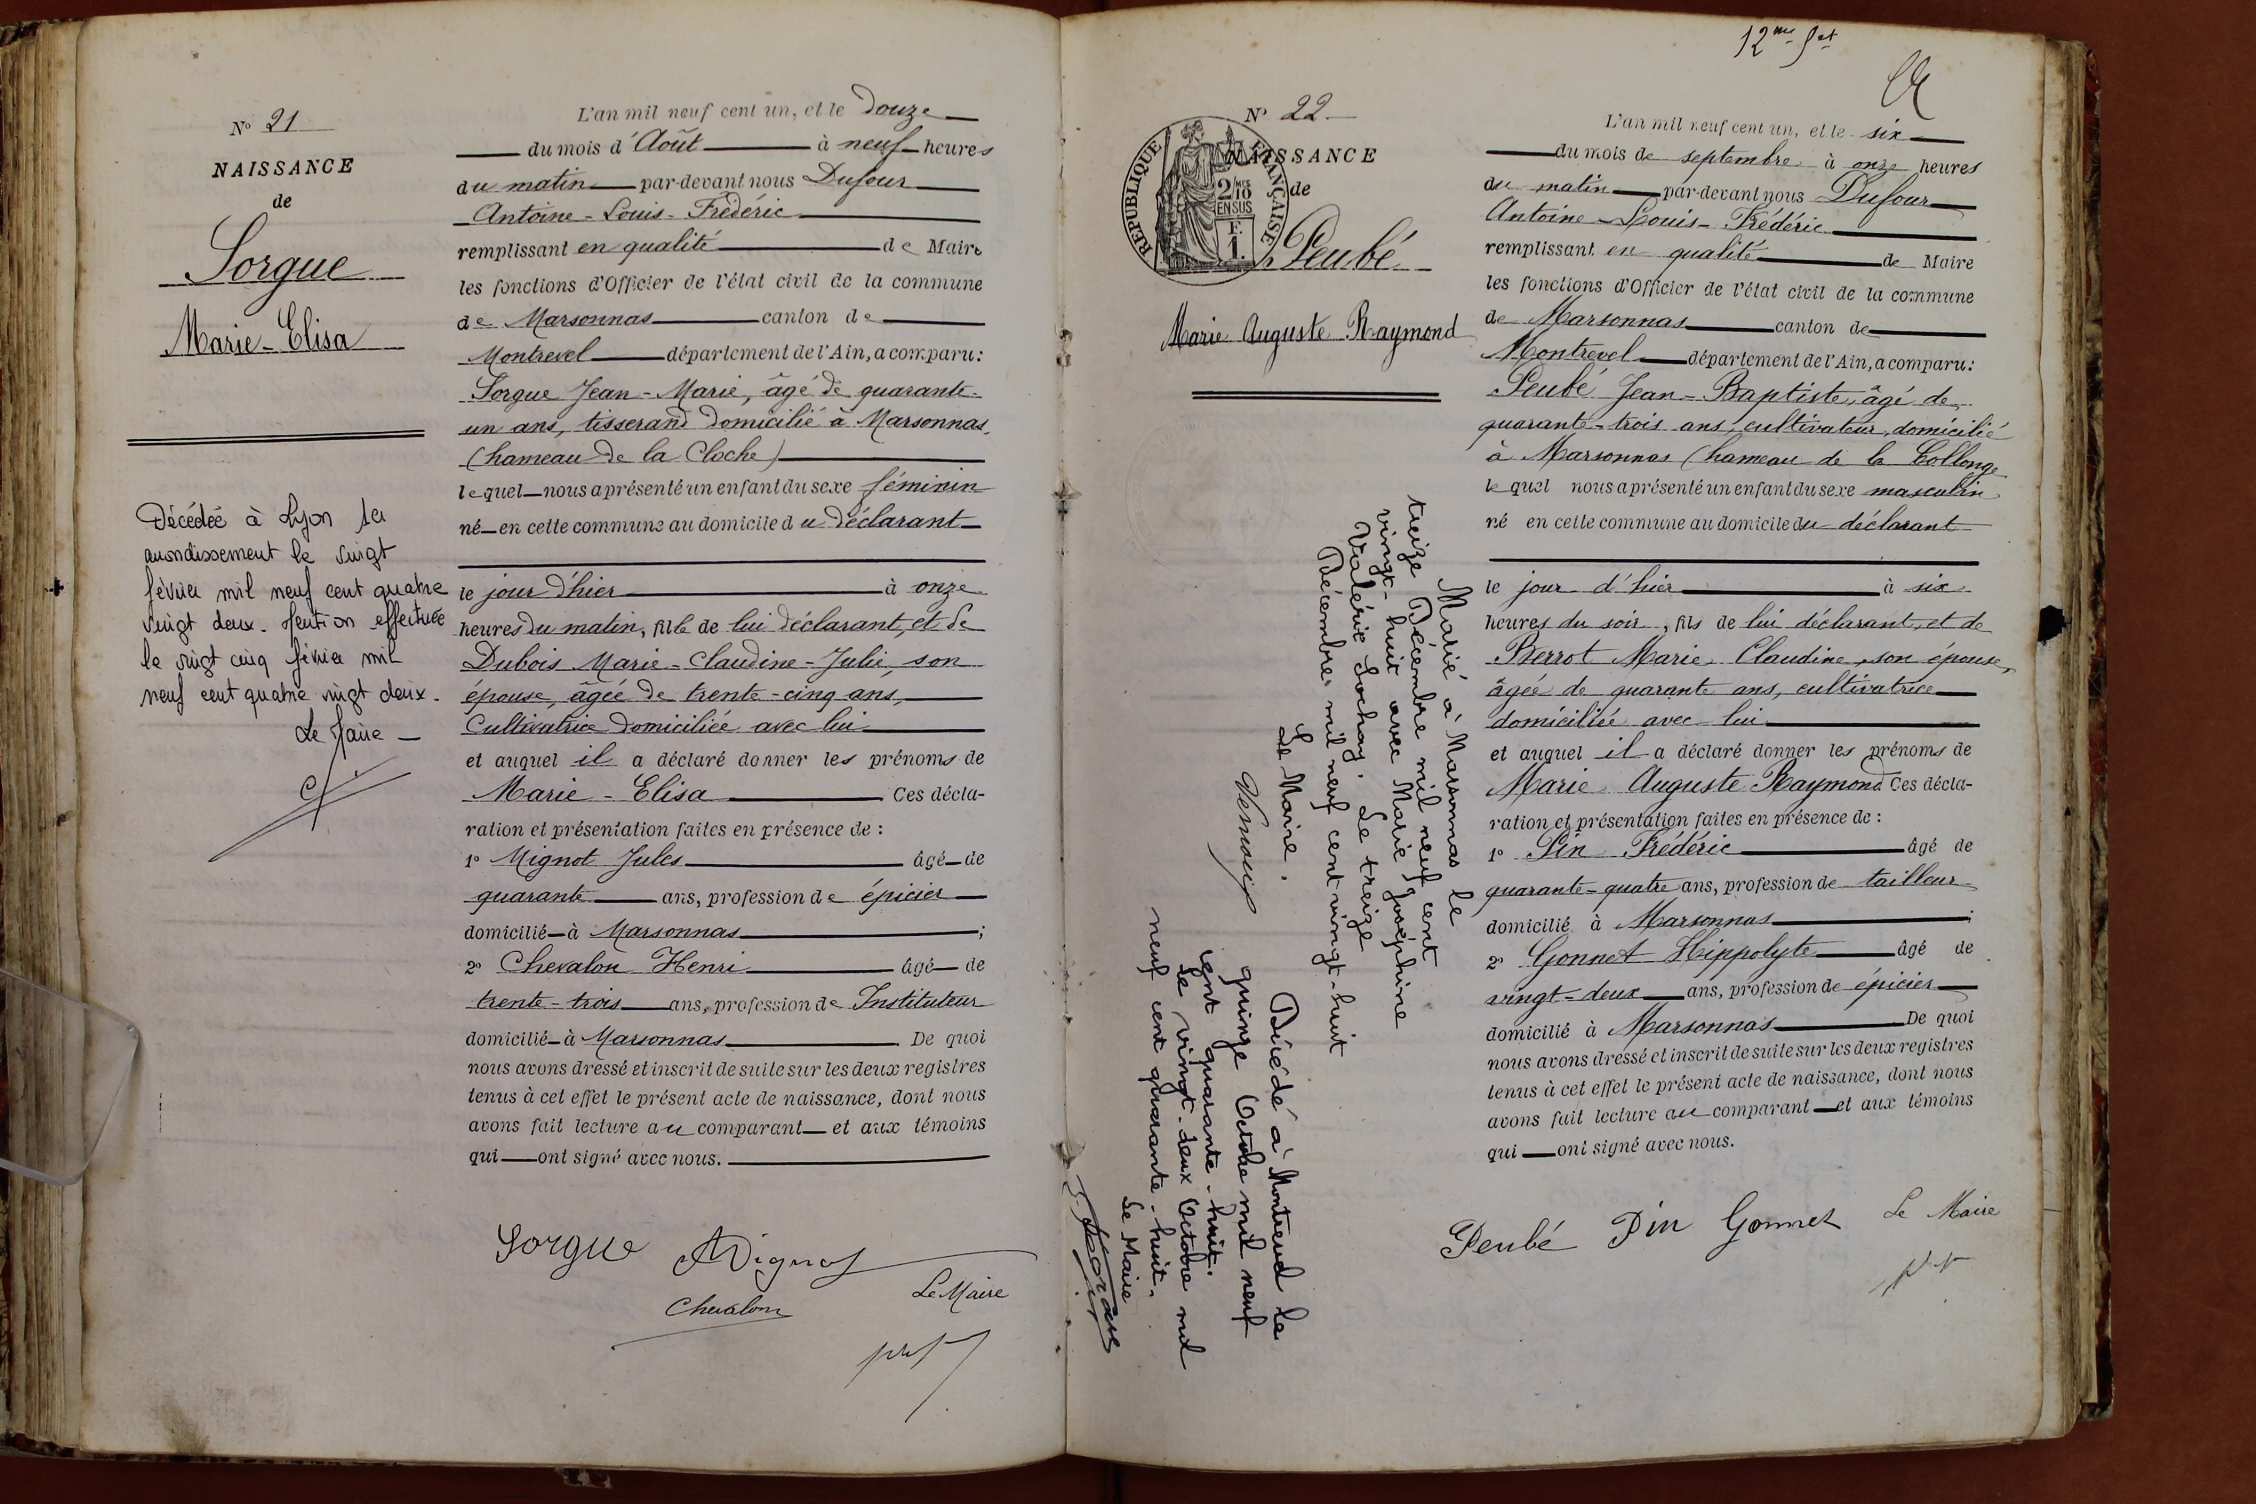 N° 21
NAISSANCE
de
Sorgue
Marie-Elisa
Décédée à Lyon 1er
arrondissement le vingt
février mil neuf cent quatre
vingt deux. Mention effectuée
le vingt cinq février mil
neuf cent quatre vingt deux.
Le Maire
L'an mil neuf cent un, et le douze
du mois d'Août à neuf heures
du matin par-devant nous Dufour
Antoine-Louis-Frédéric
remplissant en qualité de Maire
les fonctions d'Officier de l'état civil de la commune
de Marsonnas canton de
Montrevel département de l'Ain, a comparu:
Sorgue Jean-Marie, âgé de quarante-
un ans, tisserand domicilié à Marsonnas,
(hameau de la Cloche)
lequel nous a présenté un enfant du sexe féminin
né en cette commune au domicile du déclarant
le jour d'hier à onze
heures du matin, fille de lui déclarant, et de
Dubois Marie-Claudine-Julie, son
épouse, âgée de trente-cinq ans,
Cultivatrice domiciliée avec lui
et auquel il a déclaré donner les prénoms de
Marie-Elisa Ces décla-
ration et présentation faites en présence de:
1° Mignot Jules âgé de
quarante ans, profession de épicier
domicilié à Marsonnas;
2° Chevalon Henri âgé de
trente-trois ans, profession de Instituteur
domicilié à Marsonnas. De quoi
nous avons dressé et inscrit de suite sur les deux registres
tenus à cet effet le présent acte de naissance, dont nous
avons fait lecture au comparant et aux témoins
qui ont signé avec nous.
Sorgue Mignot
Chevalon
Le Maire
12me Set
N° 22
NAISSANCE
de
RÉPUBLIQUE FRANÇAISE
2/10 MES
EN SUS
F.
1.
Peubé
Marie Auguste Raymond
Marié à Marsonnas le
treize Décembre mil neuf cent
vingt-huit avec Marie Joséphine
Valérie Sochay. Le treize
Décembre mil neuf cent vingt-huit
Le Maire.
Décédé à Montrevel le
quinze Octobre mil neuf
cent quarante-huit.
Le vingt-deux Octobre mil
neuf cent quarante-huit.
Le Maire
L'an mil neuf cent un, et le six
du mois de septembre à onze heures
du matin par-devant nous Dufour
Antoine-Louis-Frédéric
remplissant en qualité de Maire
les fonctions d'Officier de l'état civil de la commune
de Marsonnas canton de
Montrevel département de l'Ain, a comparu:
Peubé Jean-Baptiste, âgé de
quarante-trois ans, cultivateur, domicilié
à Marsonnas (hameau de la Collonge
lequel nous a présenté un enfant du sexe masculin
né en cette commune au domicile du déclarant
le jour d'hier à six
heures du soir, fils de lui déclarant, et de
Berrot Marie Claudine, son épouse,
âgée de quarante ans, cultivatrice
domiciliée avec lui
et auquel il a déclaré donner les prénoms de
Marie Auguste Raymond Ces décla-
ration et présentation faites en présence de:
1° Pin Frédéric âgé de
quarante-quatre ans, profession de tailleur
domicilié à Marsonnas;
2° Gonnet Hippolyte âgé de
vingt-deux ans, profession de épicier
domicilié à Marsonnas De quoi
nous avons dressé et inscrit de suite sur les deux registres
tenus à cet effet le présent acte de naissance, dont nous
avons fait lecture au comparant et aux témoins
qui ont signé avec nous.
Peubé Pin Gonnet Le Maire